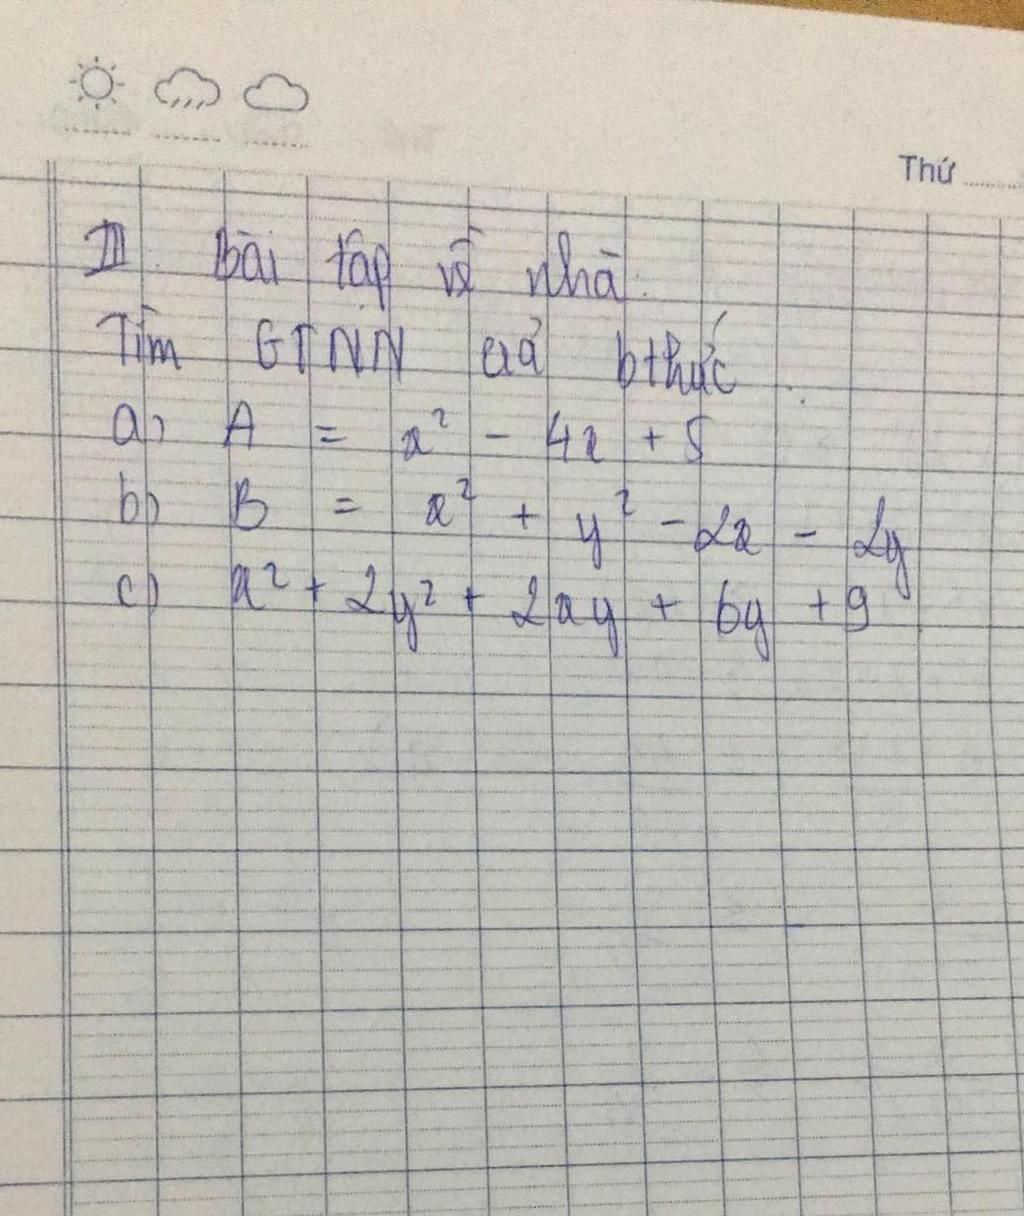 Thứ
III. Bài tập về nhà.
Tìm GTNN của bthức.
a) A = x² - 4x + 5
b) B = x² + y² - 2x - 2y
c) x² + 2y² + 2xy + 6y + 9